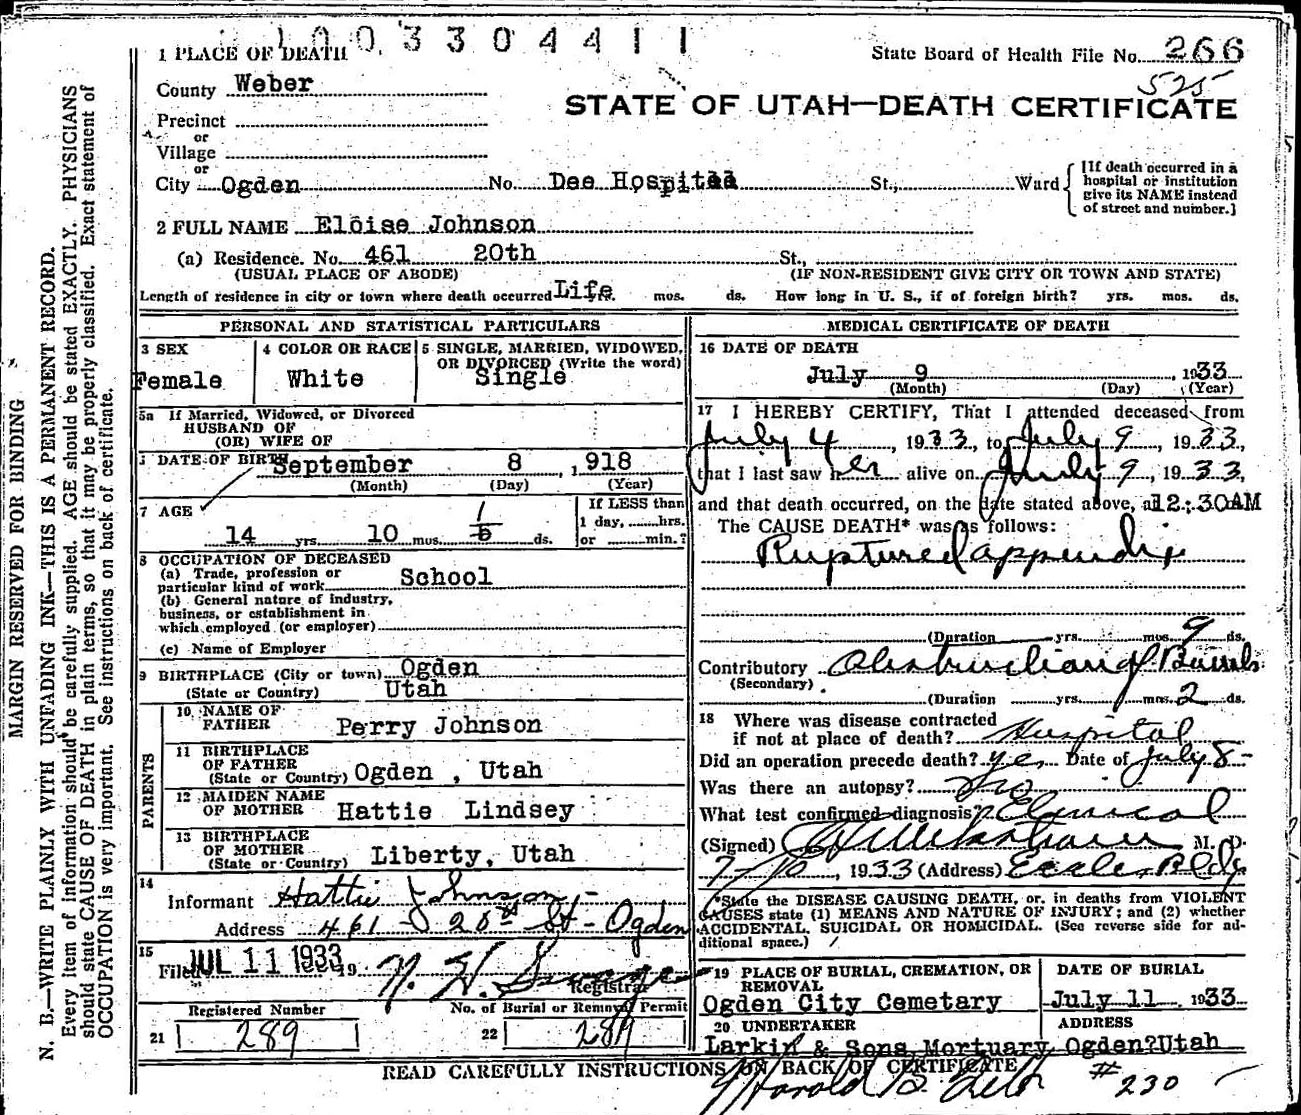 1003304411
1 PLACE OF DEATH
State Board of Health File No. 266
525
County Weber
STATE OF UTAH—DEATH CERTIFICATE
Precinct
or
Village
or
City Ogden No. Dee Hospital St., Ward
[If death occurred in a
hospital or institution
give its NAME instead
of street and number.]
2 FULL NAME Eloise Johnson
(a) Residence. No. 461 20th St.,
(USUAL PLACE OF ABODE) (IF NON-RESIDENT GIVE CITY OR TOWN AND STATE)
Length of residence in city or town where death occurred Life yrs. mos. ds. How long in U. S., if of foreign birth? yrs. mos. ds.
PERSONAL AND STATISTICAL PARTICULARS
3 SEX
Female
4 COLOR OR RACE
White
5 SINGLE, MARRIED, WIDOWED,
OR DIVORCED (Write the word)
Single
5a If Married, Widowed, or Divorced
HUSBAND OF
(OR) WIFE OF
DATE OF BIRTH September 8 , 1918
(Month) (Day) (Year)
7 AGE
14 yrs. 10 mos. 1 ds.
If LESS than
1 day, hrs.
or min.?
8 OCCUPATION OF DECEASED
(a) Trade, profession or
particular kind of work School
(b) General nature of industry,
business, or establishment in
which employed (or employer)
(c) Name of Employer
9 BIRTHPLACE (City or town) Ogden
(State or Country) Utah
PARENTS
10 NAME OF
FATHER Perry Johnson
11 BIRTHPLACE
OF FATHER
(State or Country) Ogden , Utah
12 MAIDEN NAME
OF MOTHER Hattie Lindsey
13 BIRTHPLACE
OF MOTHER
(State or Country) Liberty, Utah
14
Informant Hattie Johnson -
Address 461 - 20th St - Ogden
15
Filed JUL 11 1933 19
N. H. Savage
Registrar
Registered Number
21 289
No. of Burial or Removal Permit
22 289
MEDICAL CERTIFICATE OF DEATH
16 DATE OF DEATH
July 9 , 1933
(Month) (Day) (Year)
17 I HEREBY CERTIFY, That I attended deceased from
July 4 , 1933, to July 9, 1933,
that I last saw her alive on July 9, 1933,
and that death occurred, on the date stated above, at 12:30AM
The CAUSE DEATH* was as follows:
Ruptured appendix
(Duration yrs. mos. 9 ds.
Contributory Obstruction of Bowels
(Secondary)
(Duration yrs. mos. 2 ds.
18 Where was disease contracted
if not at place of death? Hospital
Did an operation precede death? yes Date of July 8-
Was there an autopsy? no
What test confirmed diagnosis? Clinical
(Signed) M. D.
7-10, 1933 (Address) Eccles Bldg
*State the DISEASE CAUSING DEATH, or, in deaths from VIOLENT
CAUSES state (1) MEANS AND NATURE OF INJURY; and (2) whether
ACCIDENTAL, SUICIDAL OR HOMICIDAL. (See reverse side for ad-
ditional space.)
19 PLACE OF BURIAL, CREMATION, OR
REMOVAL
Ogden City Cemetary
DATE OF BURIAL
July 11 1933
20 UNDERTAKER
Larkin & Sons Mortuary
ADDRESS
Ogden?Utah
READ CAREFULLY INSTRUCTIONS ON BACK OF CERTIFICATE
Harold B.
# 230
MARGIN RESERVED FOR BINDING
N. B.—WRITE PLAINLY WITH UNFADING INK—THIS IS A PERMANENT RECORD.
Every item of information should be carefully supplied. AGE should be stated EXACTLY. PHYSICIANS
should state CAUSE OF DEATH in plain terms, so that it may be properly classified. Exact statement of
OCCUPATION is very important. See instructions on back of certificate.